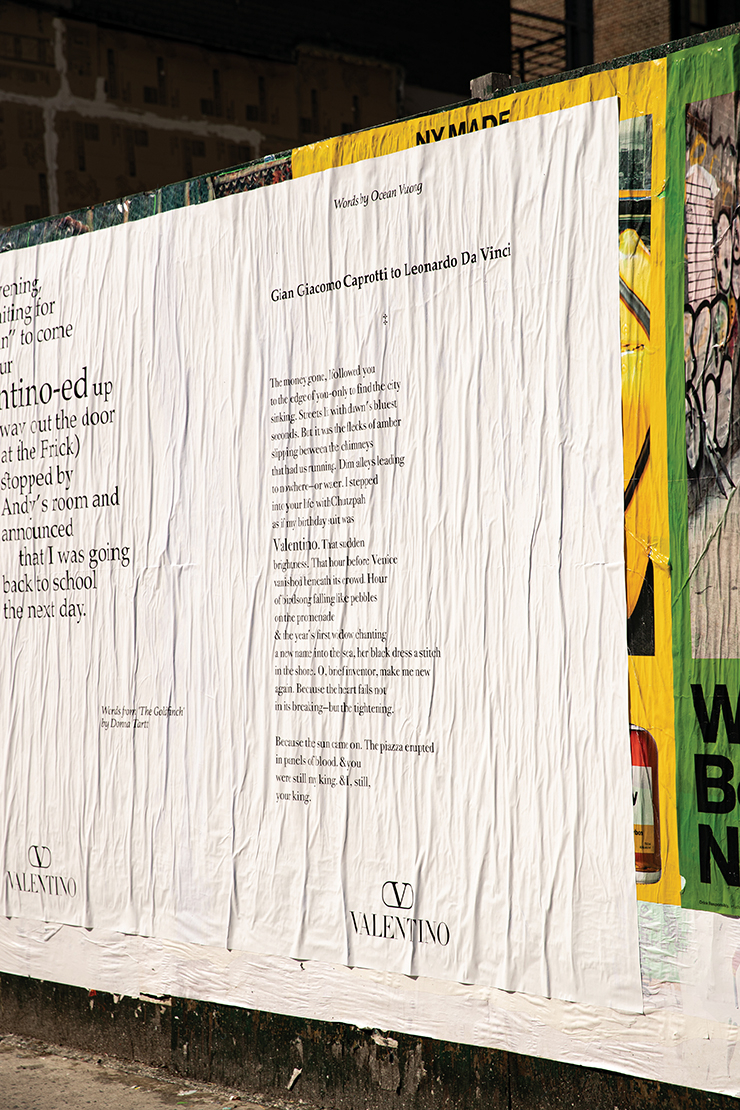 NY MADE
vening,
aiting for
n” to come
ur
ntino-ed up
way out the door
at the Frick)
stopped by
Andy’s room and
announced
that I was going
back to school
the next day.
Words from 'The Goldfinch'
by Donna Tartt
VALENTINO
Words by Ocean Vuong
Gian Giacomo Caprotti to Leonardo Da Vinci
‡
The money gone, I followed you
to the edge of you-only to find the city
sinking. Streets lit with dawn’s bluest
seconds. But it was the flecks of amber
slipping between the chimneys
that had us running. Dim alleys leading
to nowhere—or water. I stepped
into your life with Chutzpah
as if my birthday suit was
Valentino. That sudden
brightness. That hour before Venice
vanished beneath its crowd. Hour
of birdsong falling like pebbles
on the promenade
& the year’s first widow chanting
a new name into the sea, her black dress a stitch
in the shore. O, brief inventor, make me new
again. Because the heart fails not
in its breaking—but the tightening.
Because the sun came on. The piazza erupted
in panels of blood. & you
were still my king. & I, still,
your king.
V
VALENTINO
W
Be
N